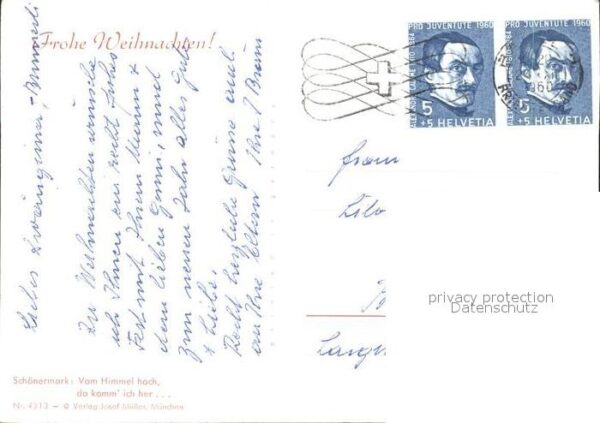 Frohe Weihnachten!
Zu Weihnachten wünsche
ich Ihnen ein recht frohes
Fest mit Ihrem Mann &
dem lieben
zum neuen Jahr alles Gute
& Liebe.
Recht herzliche Grüsse auch
an Ihre Eltern Ihre
PRO JUVENTUTE 1960
5
+5 HELVETIA
PRO JUVENTUTE 1960
5
+5 HELVETIA
privacy protection
Datenschutz
Schönermark: Vom Himmel hoch,
da komm' ich her . . .
Nr. 4313 – © Verlag Josef Müller, München